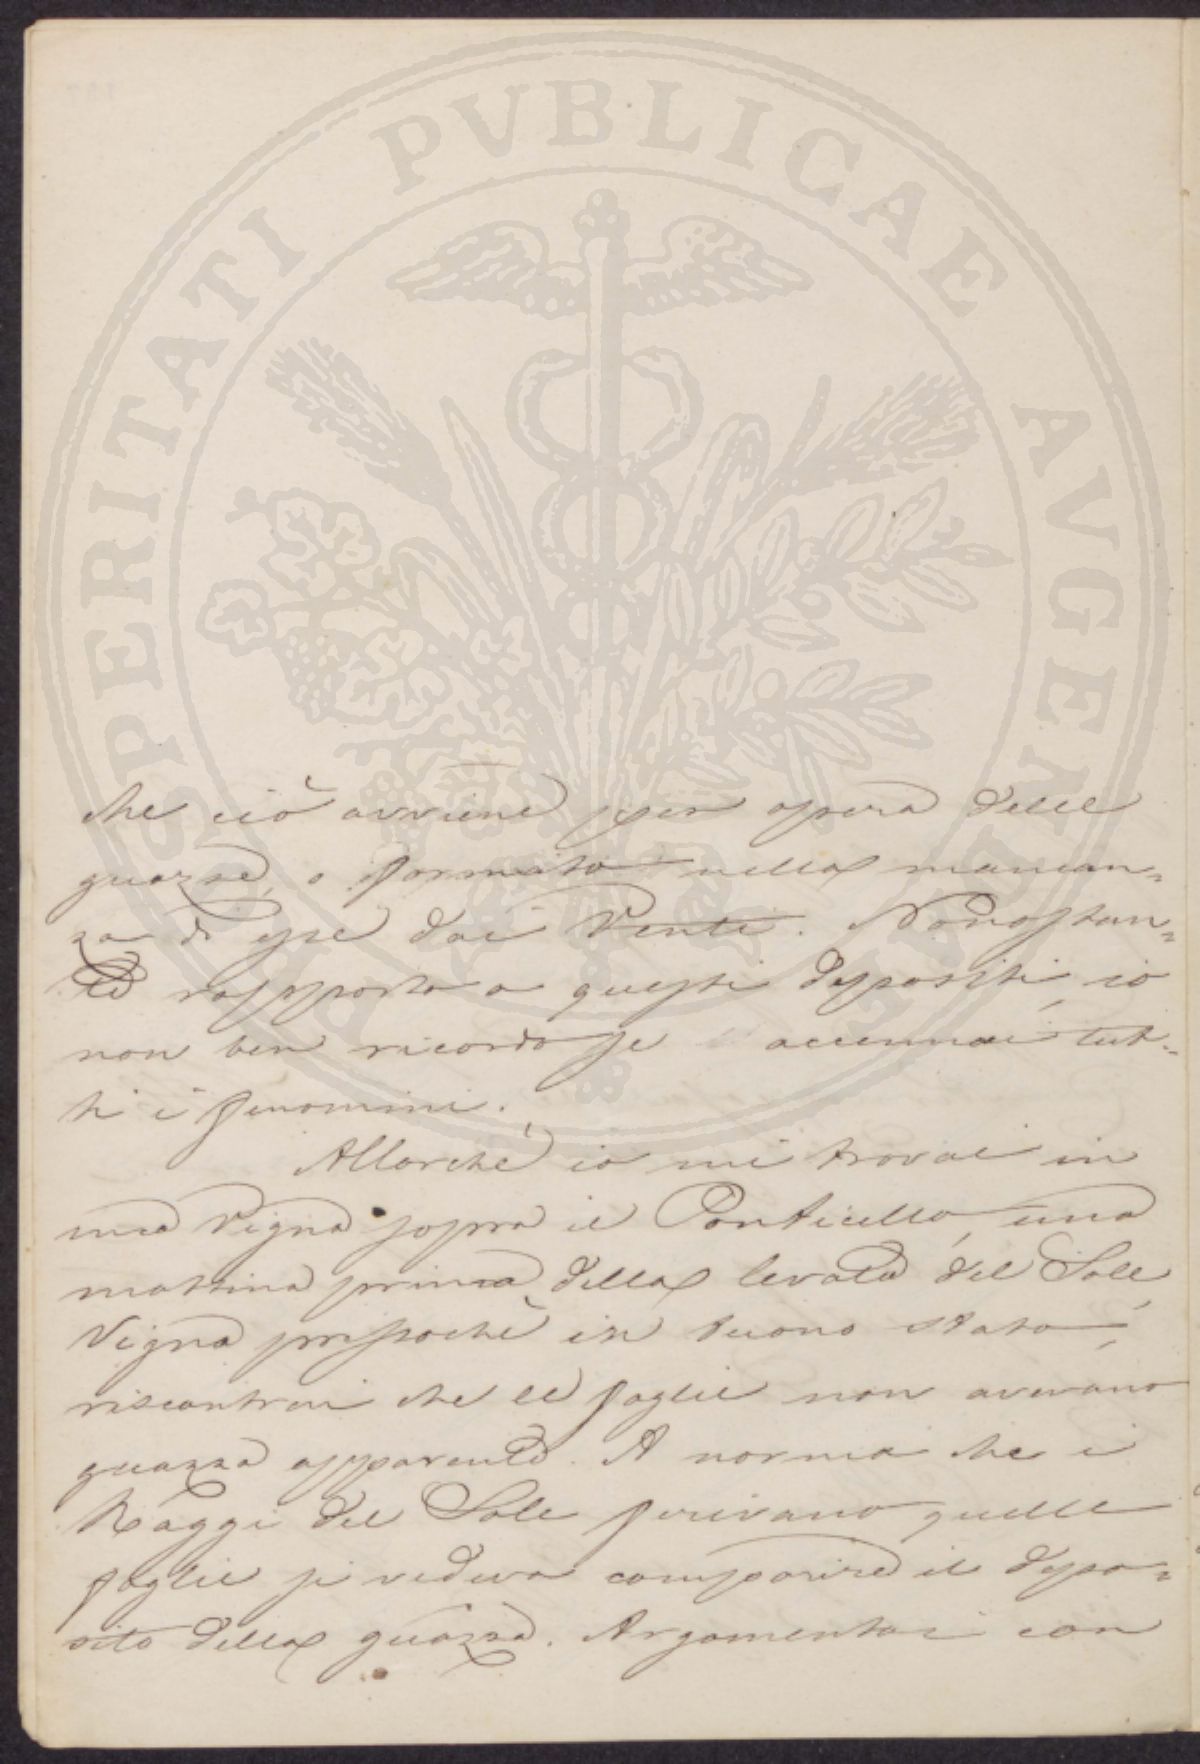 PROSPERITATI PVBLICAE AVGENDAE
che ciò avviene per opera delle
guazze, o formato nella mancan=
za di esse dai Venti. Nonostan=
te rapporto a questi depositi, io
non ben ricordo se accennai tut=
ti i fenomini.
Allorchè io mi trovai in
una Vigna sopra il Ponticello, una
mattina prima della levata del Sole,
Vigna pressochè in buono stato,
riscontrai che le foglie non avevano
guazza apparente. A norma che i
Raggi del Sole ferivano quelle
foglie si vedeva comparire il depo=
sito della guazza. Argomentai con